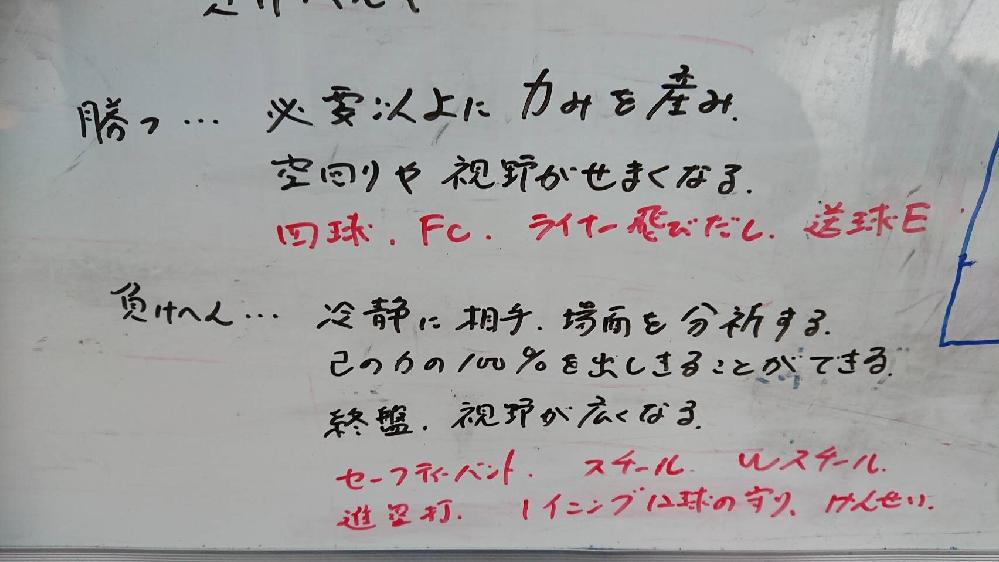 勝つ… 必要以上に力みを産み.
空回りや視野がせまくなる.
四球. FC. ライナー飛びだし. 送球E
負けへん… 冷静に相手.場面を分析する.
己の力の100%を出しきることができる.
終盤.視野が広くなる.
セーフティーバント. スチール. Wスチール.
進塁打. 1イニング12球の守り. けんせい.